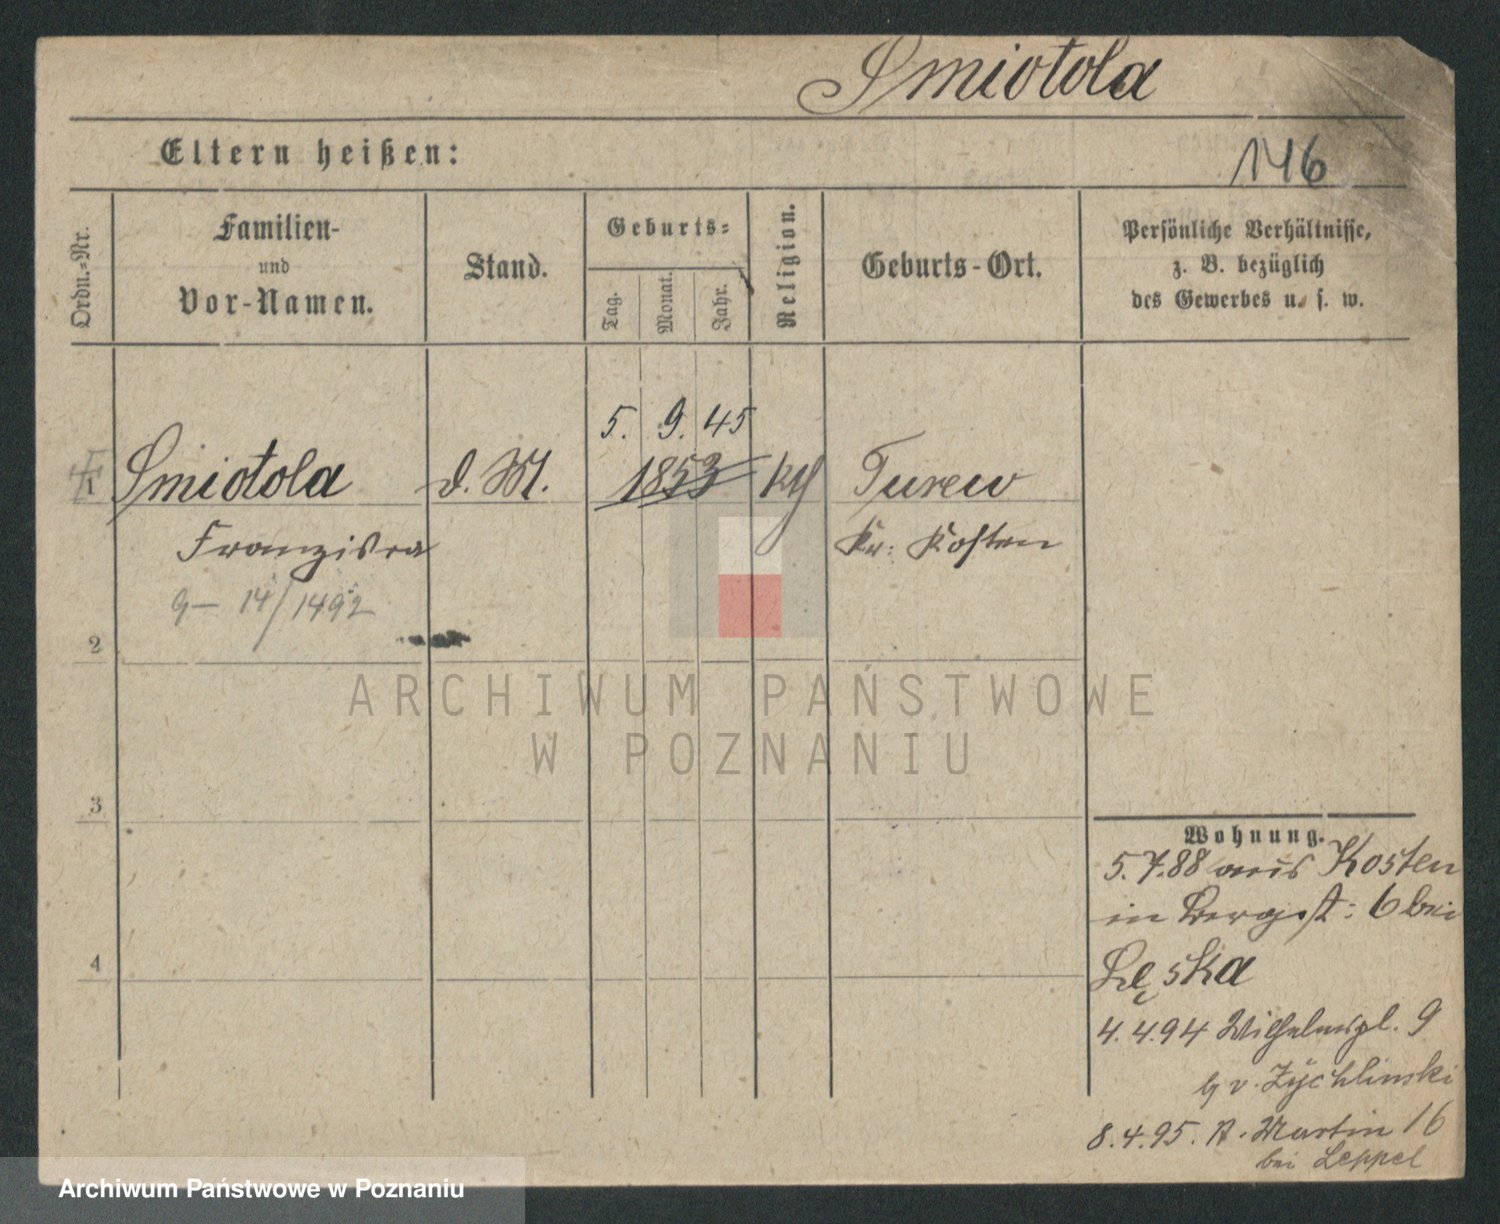 Smiotola
Eltern heißen:
146
Ordn.-Nr.
Familien-
und
Vor-Namen.
Stand.
Geburts-
Tag.
Monat.
Jahr.
Religion.
Geburts-Ort.
Persönliche Verhältnisse,
z. B. bezüglich
des Gewerbes u. s. w.
5. 9. 45
1 Smiotola d. M. 1853 kth Turew
Franziska Kr: Kosten
9- 14/1492
2
3
4
ARCHIWUM PAŃSTWOWE
W POZNANIU
Wohnung.
5.7.88 aus Kosten
in Bergst: 6 bei
Łęska
4.4.94 Wilhelmspl. 9
b/ v. Zychlinski
8.4.95. St. Martin 16
bei Leppel
Archiwum Państwowe w Poznaniu